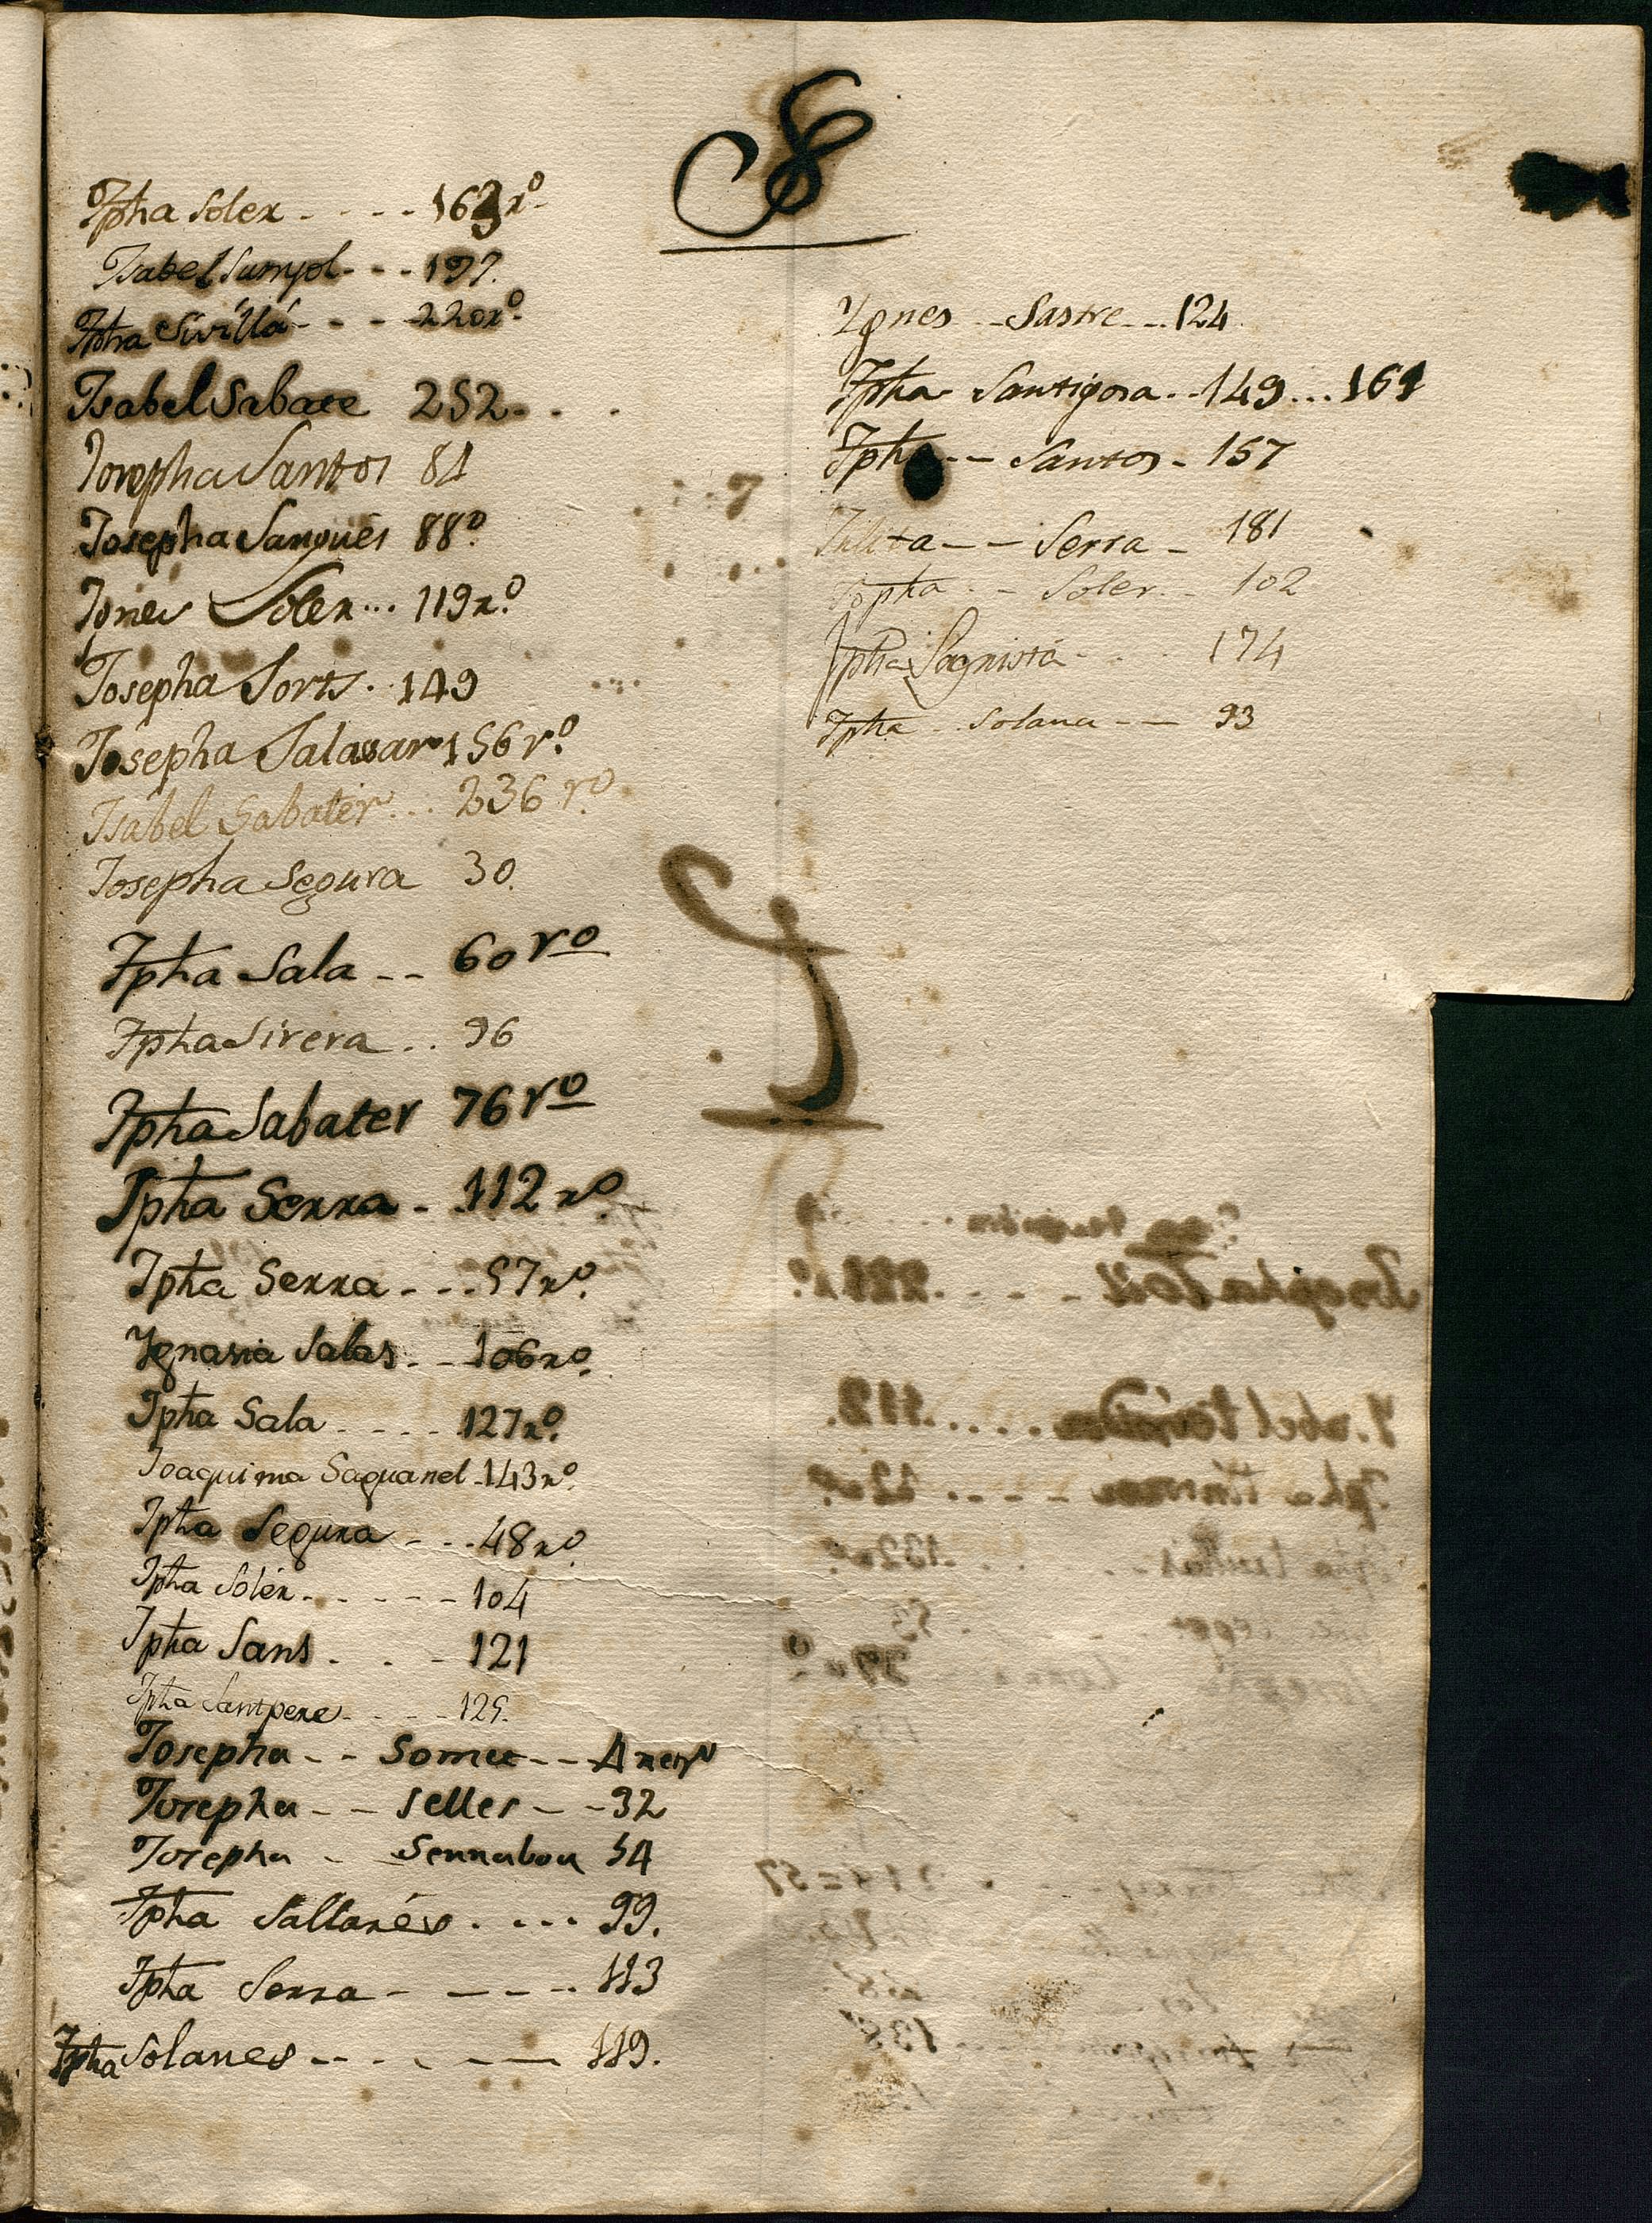 S
Jpha Soler - - - - 163 ro
Isabel Sunyol - - - 197.
Jpha Sivillá - - - 220 ro
Isabel Sabate 252 - . .
Josepha Santos 81
Josepha Sangués 88º
Ignes Soler ... 119 ro
Josepha Sorts . 149
Josepha Salassar 156 ro
Isabel Sabater ... 236 ro
Josepha Segura 30.
Jpha Sala -- 60 ro
Jpha Sivera .. 96
Jpha Sabater 76 ro
Jpha Serra - . 112 ro
Jpha Serra - - - 57 ro
Ignasia Salas . - 106 ro
Jpha Sala - - - - 127 ro
Joaquima Saguanel - 143 ro
Jpha Segura - - - 48 ro
Jpha Solér - - - - - 104
Jpha Sans . . - 121
Jpha Santpere - - - - 125.
Josepha - - Somee - - 4
Josepha - - Selles - - 32
Josepha - Sennabou 54
Jpha Sallarés . - - - 99.
Jpha Serra - - - - - 113
Jpha Solanes - - - - - 119.
Ygnes - - Sastre - - . 124
Jpha Santigosa . - 149 ... 161
Jpha - - Santos - 157
Julita - - Serra - 181
Jopha . - Soler . - 102
Jpha Sagnistá - . . 174
Jpha - Solana - - 93